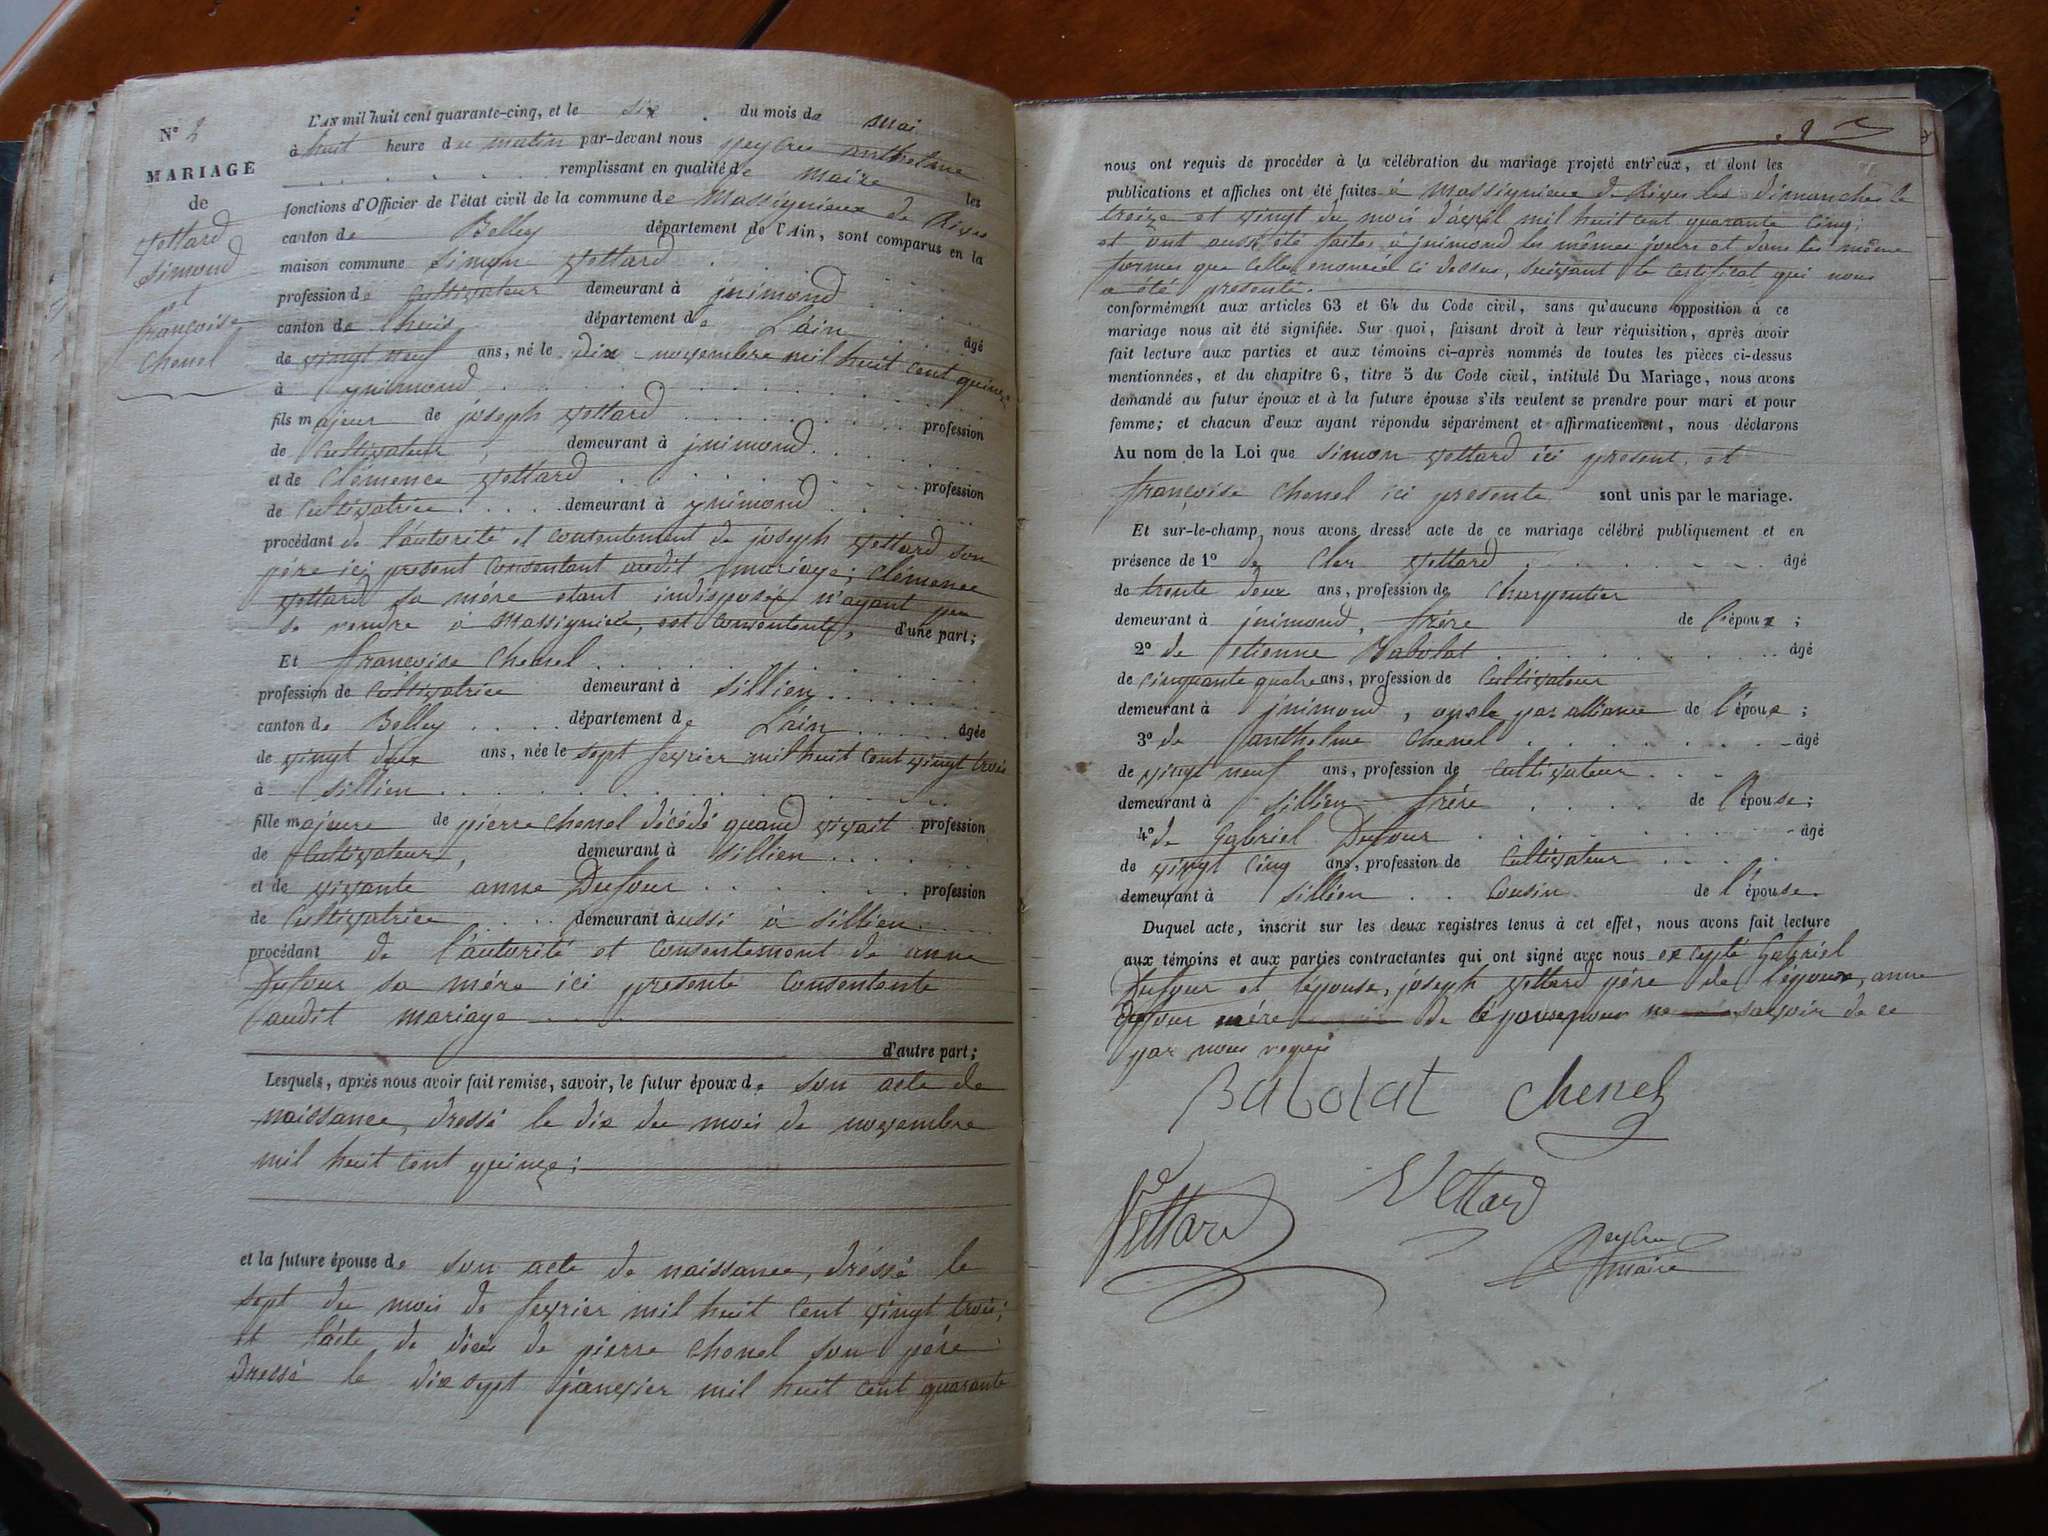 N° 2
MARIAGE
de
Vettard
Simond
et
françoise
Chenel
L'AN mil huit cent quarante-cinq, et le six du mois de mai
à huit heure du matin par-devant nous peyleu anthelme
remplissant en qualité de maire les
fonctions d'Officier de l'état civil de la commune de Massignieux de Rives
canton de Belley département de l'Ain, sont comparus en la
maison commune Simon Vettard
profession de Cultivateur demeurant à jnimond
canton de Lhuis département de L'ain âgé
de vingt neuf ans, né le dix novembre mil huit cent quinze
à ynimond
fils majeur de joseph Vettard profession
de Cultivateur, demeurant à jnimond
et de Clémence Vettard profession
de Cultivatrice demeurant à ynimond
procédant de l'autorité et consentement de joseph Vettard son
père ici présent consentant audit mariage; Clémence
Vettard sa mère etant indisposée n'ayant peu
se rendre à Massignieu, est consentente, d'une part;
Et françoise Chenel
profession de Cultivatrice demeurant à Sillien
canton de Belley département de L'ain âgée
de vingt deux ans, née le sept fevrier mil huit cent vingt trois
à Sillien
fille majeure de pierre Chenel décédé quand vivait profession
de Cultivateur, demeurant à Sillien
et de vivante anne Dufour profession
de Cultivatrice demeurant à ussi à Sillien
procédant de l'autorité et consentement de anne
Dufour sa mère ici présente Consentente
audit mariage
d'autre part;
Lesquels, après nous avoir fait remise, savoir, le futur époux de son acte de
naissance, dressé le dix du mois de novembre
mil huit cent quinze;
et la future épouse de son acte de naissance, dréssé le
sept du mois de fevrier mil huit cent vingt trois;
et l'acte de décès de pierre Chenel son père
dressé le dix sept janvier mil huit cent quarante
nous ont requis de procéder à la célébration du mariage projeté entr'eux, et dont les
publications et affiches ont été faites à Massignieux de Rives les dimanches le
treize et vingt du mois d'avril mil huit cent quarante cinq;
et ont aussi été faites à jnimond les mêmes jours et dans les même
formes que celles enoncée ci dessus, suivant le certificat qui nous
a été présenté.
conformément aux articles 63 et 64 du Code civil, sans qu'aucune opposition à ce
mariage nous ait été signifiée. Sur quoi, faisant droit à leur réquisition, après avoir
fait lecture aux parties et aux témoins ci-après nommés de toutes les pièces ci-dessus
mentionnées, et du chapitre 6, titre 5 du Code civil, intitulé Du Mariage, nous avons
demandé au futur époux et à la future épouse s'ils veulent se prendre pour mari et pour
femme; et chacun d'eux ayant répondu séparément et affirmativement, nous déclarons
Au nom de la Loi que Simon Vettard ici present, et
françoise Chenel ici presente sont unis par le mariage.
Et sur-le-champ nous avons dressé acte de ce mariage célébré publiquement et en
présence de 1° de Cler Vettard âgé
de trente deux ans, profession de Charpentier
demeurant à jnimond, frère de l'époux;
2° de etienne Babolat âgé
de cinquante quatre ans, profession de Cultivateur
demeurant à jnimond, oncle par alliance de l'époux;
3° de anthelme Chenel âgé
de vingt neuf ans, profession de Cultivateur
demeurant à Sillien frère de l'épouse;
4° de Gabriel Dufour âgé
de vingt cinq ans, profession de Cultivateur
demeurant à Sillien Cousin de l'épouse.
Duquel acte, inscrit sur les deux registres tenus à cet effet, nous avons fait lecture
aux témoins et aux parties contractantes qui ont signé avec nous excepté Gabriel
Dufour et l'épouse, joseph Vettard père de l'époux, anne
Dufour mère de l'épouse pour ne savoir de ce
par nous requis
Babolat Chenel
Vettard Vettard
Peyleu
maire